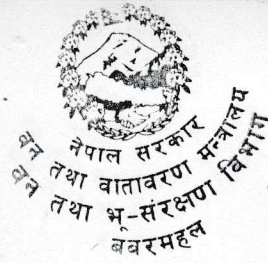 नेपाल सरकार
वन तथा वातावरण मन्त्रालय
वन तथा भू-संरक्षण विभाग
बबरमहल